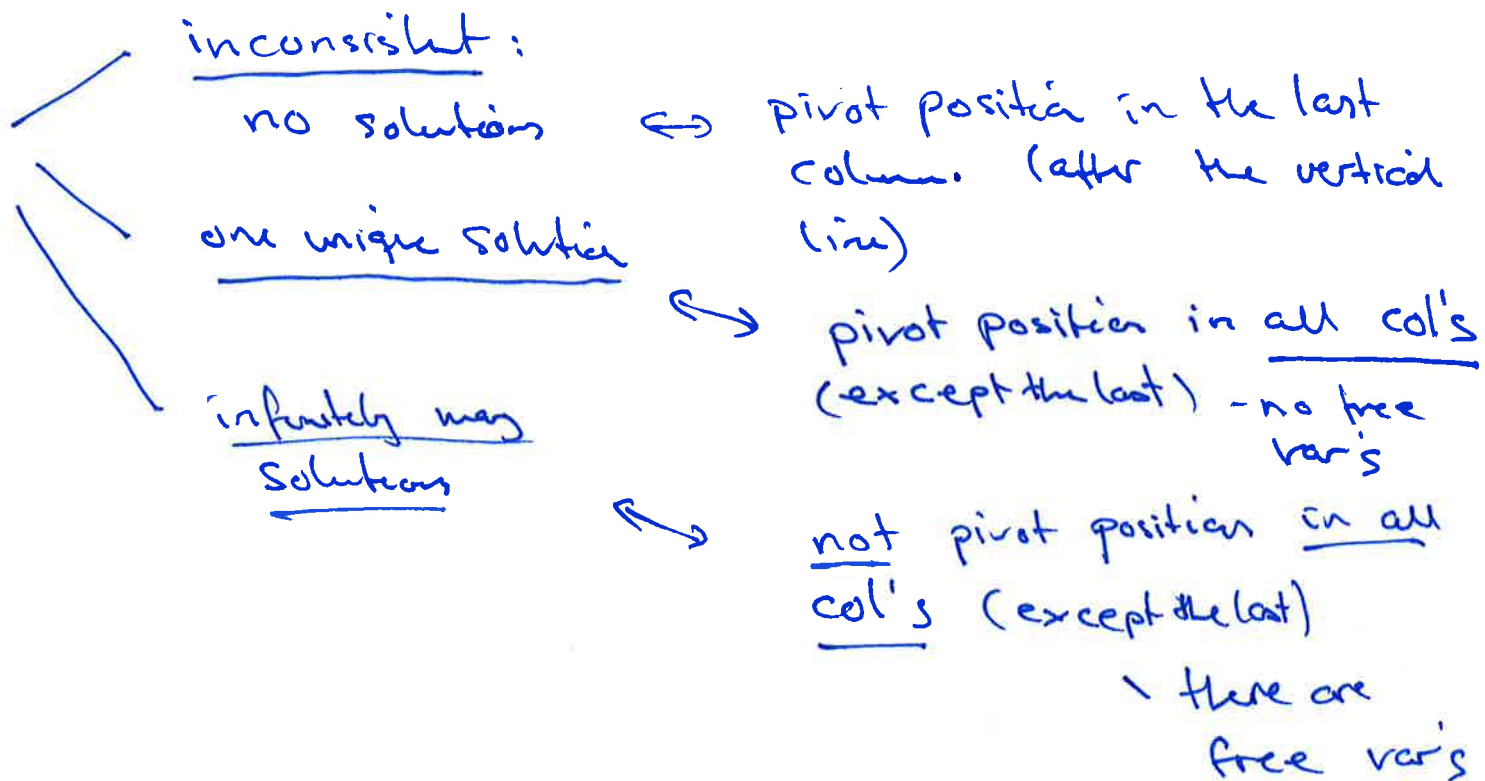 inconsistent:
no solutions ↔ pivot position in the last
column. (after the vertical
line)
one unique solution
↔ pivot position in all col's
(except the last) - no free
var's
infinitely many
solutions
↔ not pivot position in all
col's (except the last)
\ there are
free var's